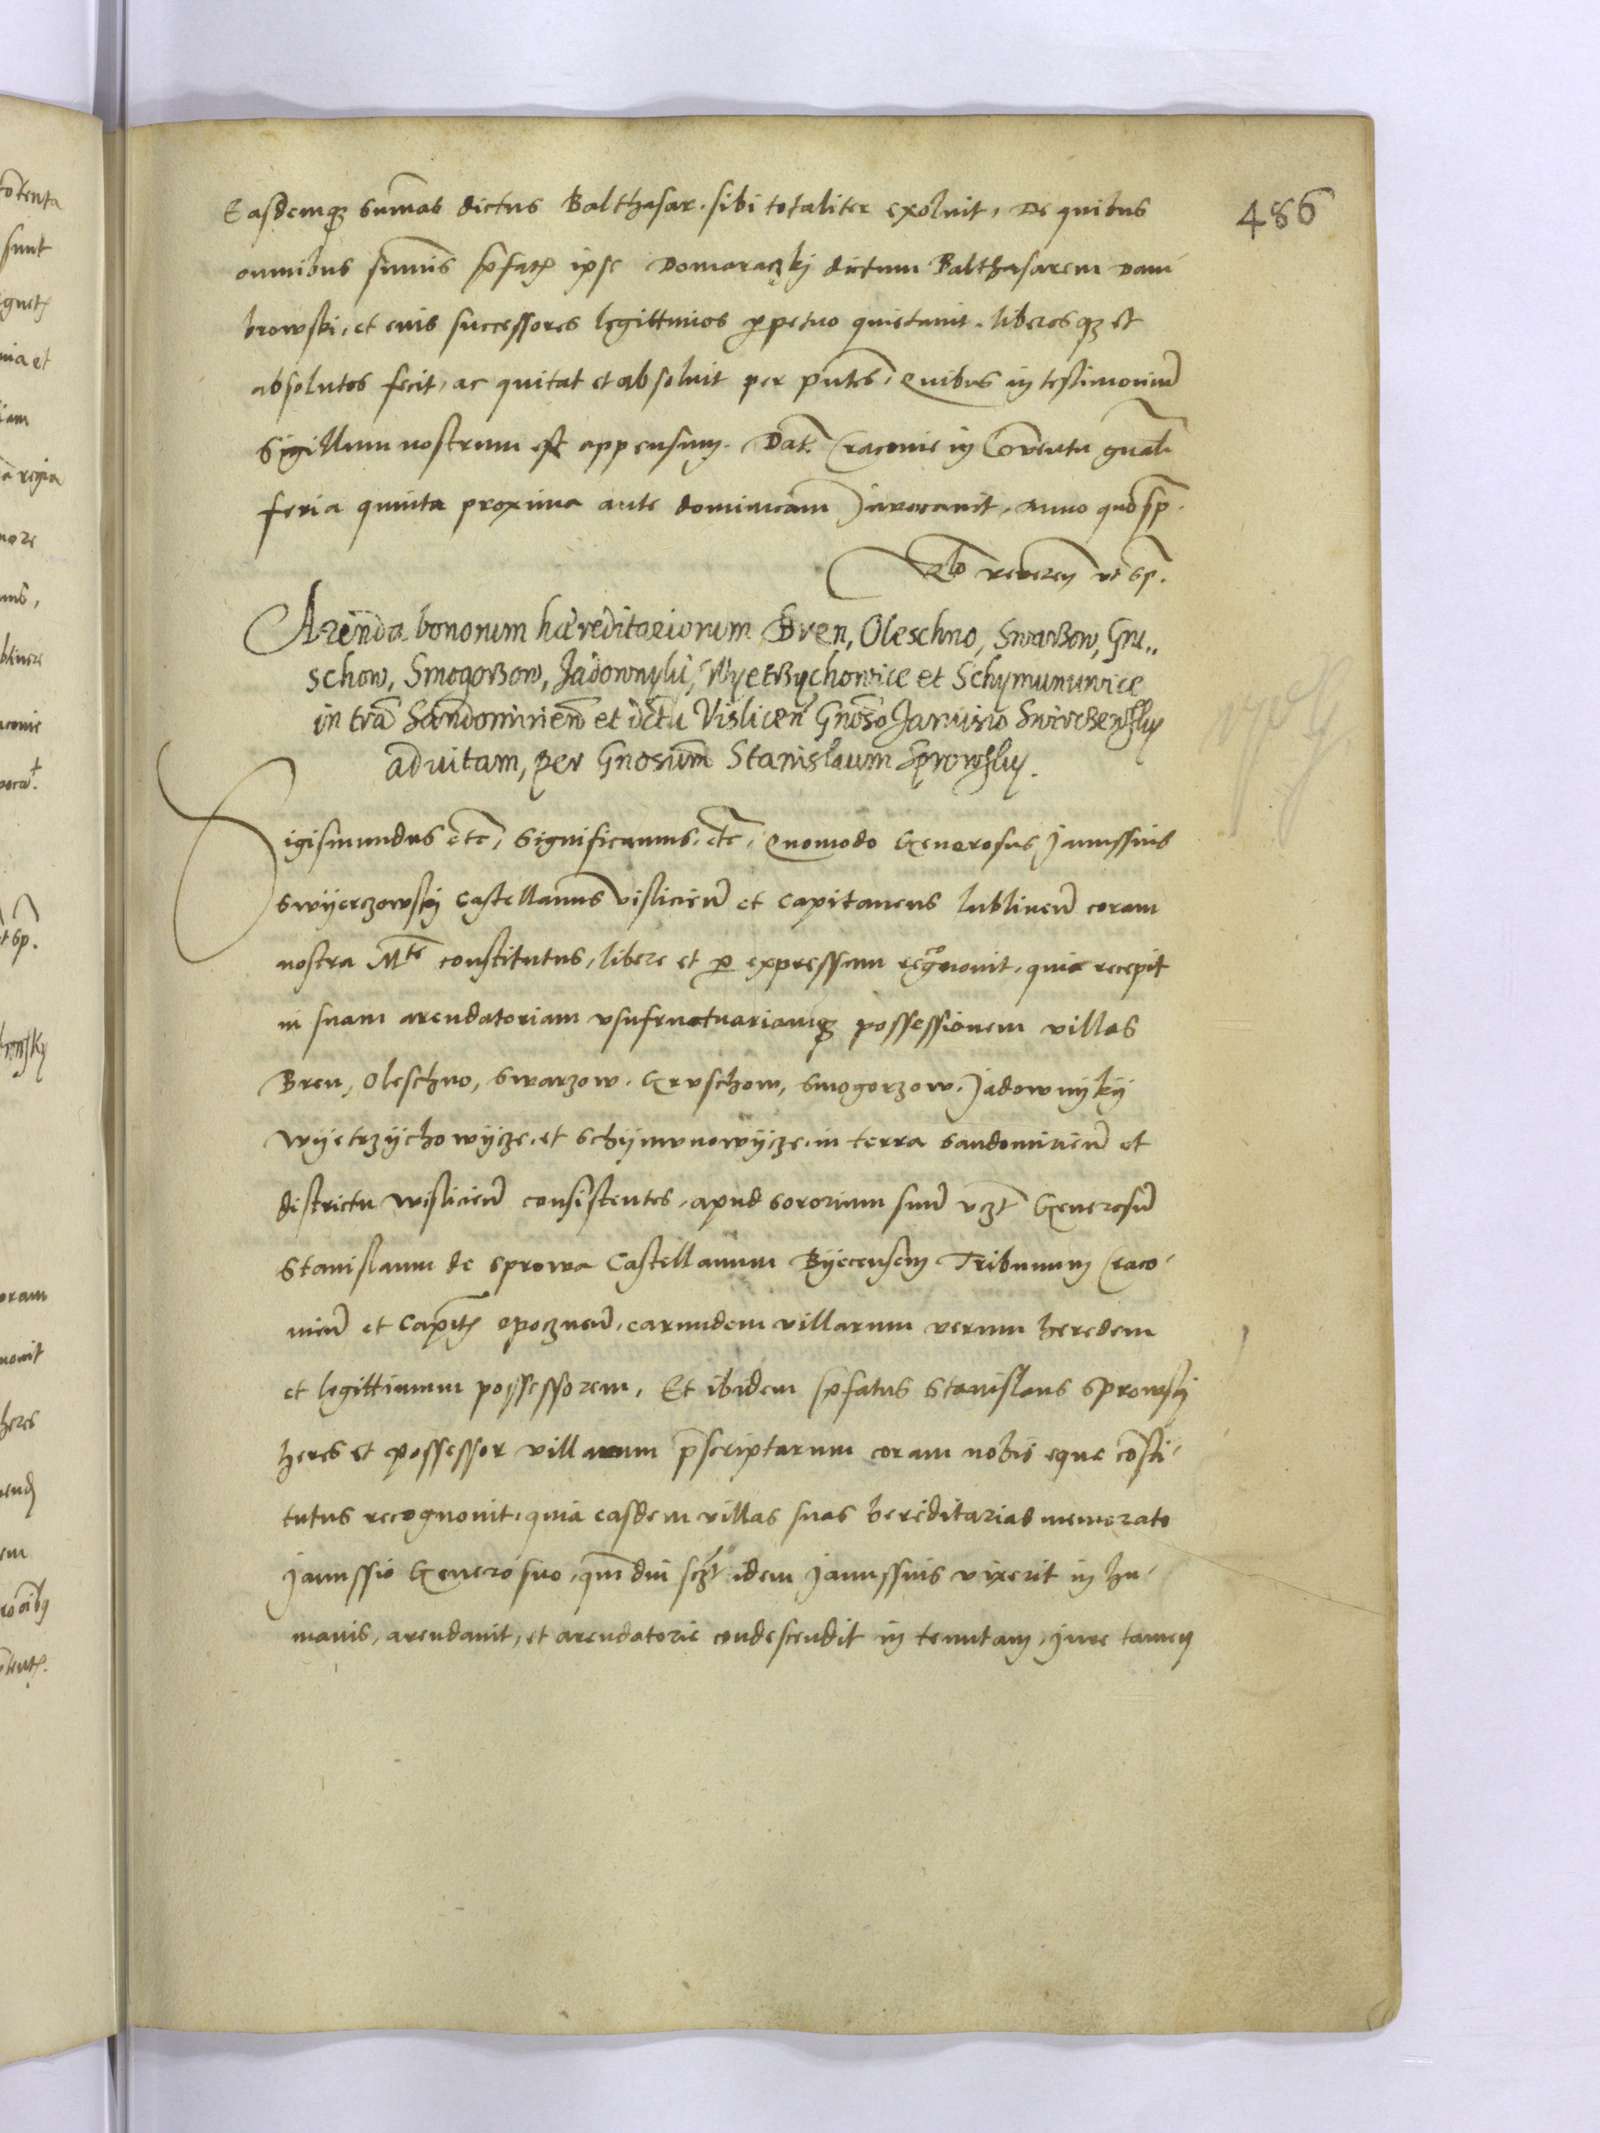 486
Easdemq₃ sum̄as dictus Balthasar sibi totaliter exoluit, De quibus
omnibus sum̄is p̄fat₎ ipse Domaraczkj dictum Balthasarem Dam-
browski, et euis successores legittimos ꝑpetuo quietauit, liberosq₃ et
absolutos fecit, ac quitat et absoluit per pn̄tes, Quibus in testimoniū
Sigillum nostrum est appensum. Dat̄. Cracouie in Cōuentu gn̄ali
feria quinta proxima ante dominicam Inuocauit, Anno quo sp̄.
Rlō reueren vt sp̄.
Arenda bonorum haereditariorum Bren, Oleschno, Swarzow, Gru-
schow, Smogorzow, Jadownyki, Wyetrzychowice et Schymunuwice
in trā Sandomirien̄ et dc̄tu Vislicen̄ Gn̄oso Janusio Swierczewsky
ad uitam, per Gnosum̄ Stanislaum Sprowsky.
Sigismundus etc̄, Significamus, etc̄, Quomodo Generosus Janussius
Swyerczowsky Castellanus Vislicien̄ et Capitaneus lublinen̄ coram
nostra Mte constitutus, libere et ꝑ expressum recognouit, quia recepit
in suam arendatoriam vsufructuariamq₃ possessionem villas
Bren, Oleschno, Swarzow, Gruschow, Smogorzow, Jadownyky
Wyetrzychowycze, et Schymunowycze, in terra Sandomirien̄ et
districtu Wislicien̄ consistentes, apud sororium suū vcz̄t Generosū
Stanislaum de Sprowa Castellanum Byecensem Tribunum Craco-
uien̄ et Capit̄ opocznen̄, earundem villarum verum heredem
et legittimum possessorem, Et ibidem p̄fatus Stanislaus Sprowsky
heres et possessor villarum p̄scriptarum coram nobis eque cōsti-
tutus recognouit, quia easdem villas suas hereditarias memorato
Janussio Generosuo, qm̄diu scz̄t idem Janussius vixerit in hu-
manis, arendauit, et arendatorie condescendit in tenutam, iure tamen